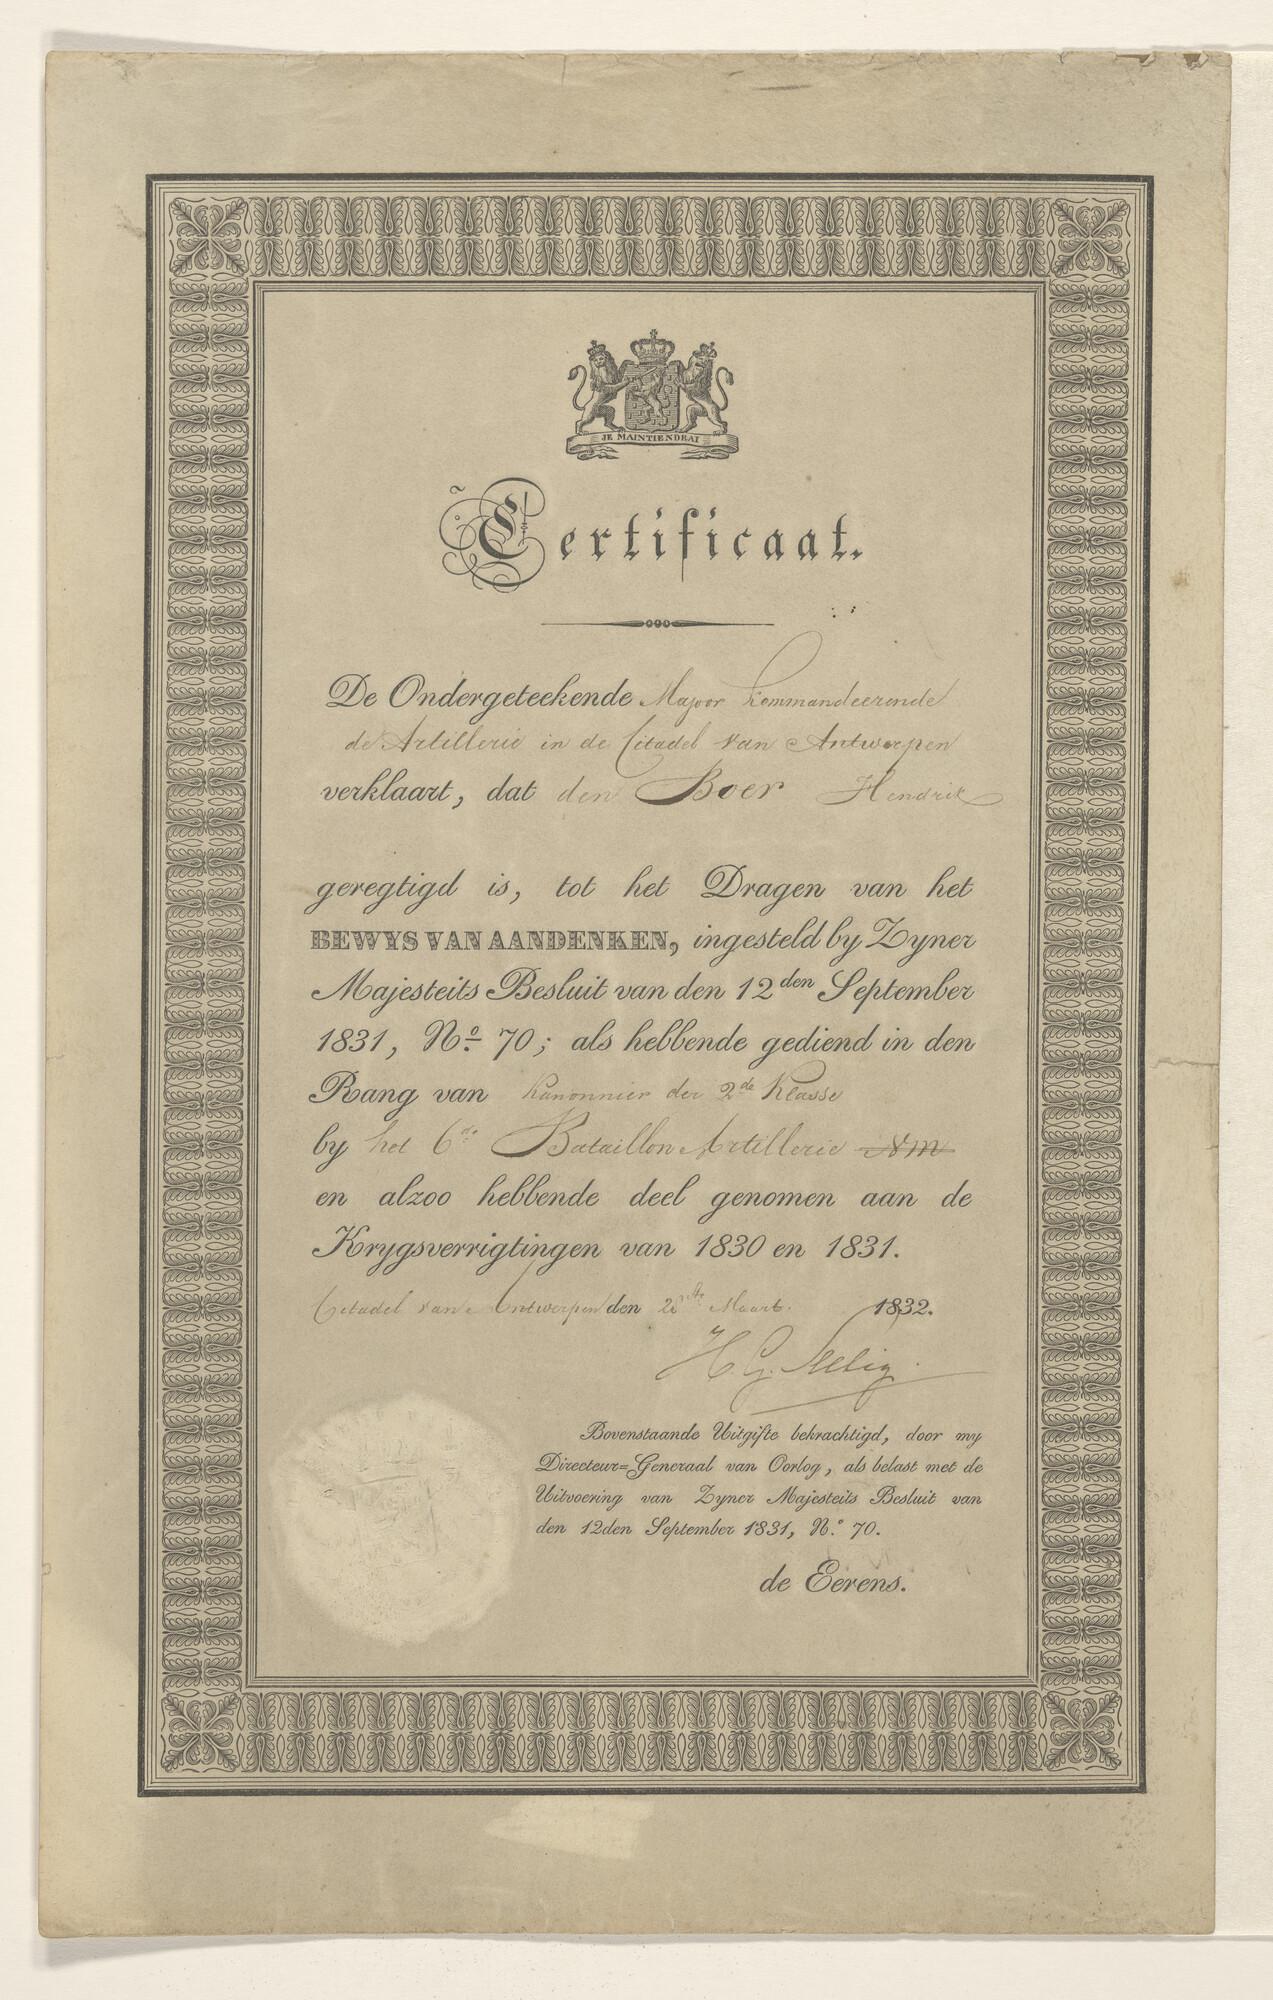 JE MAINTIENDRAI
Certificaat.
De Ondergeteekende Majoor Kommandeerende
de Artillerie in de Citadel van Antwerpen
verklaart, dat den Boer Hendrik
geregtigd is, tot het Dragen van het
BEWYS VAN AANDENKEN, ingesteld by Zyner
Majesteits Besluit van den 12den September
1831, No. 70; als hebbende gediend in den
Rang van Kanonnier der 2de Klasse
by het 6de Bataillon Artillerie
en alzoo hebbende deel genomen aan de
Krygsverrigtingen van 1830 en 1831.
Citadel van Antwerpen den Maart. 1832.
H. G. Seelig.
Bovenstaande Uitgifte bekrachtigd, door my
Directeur=Generaal van Oorlog, als belast met de
Uitvoering van Zyner Majesteits Besluit van
den 12den September 1831, No. 70.
de Eerens.